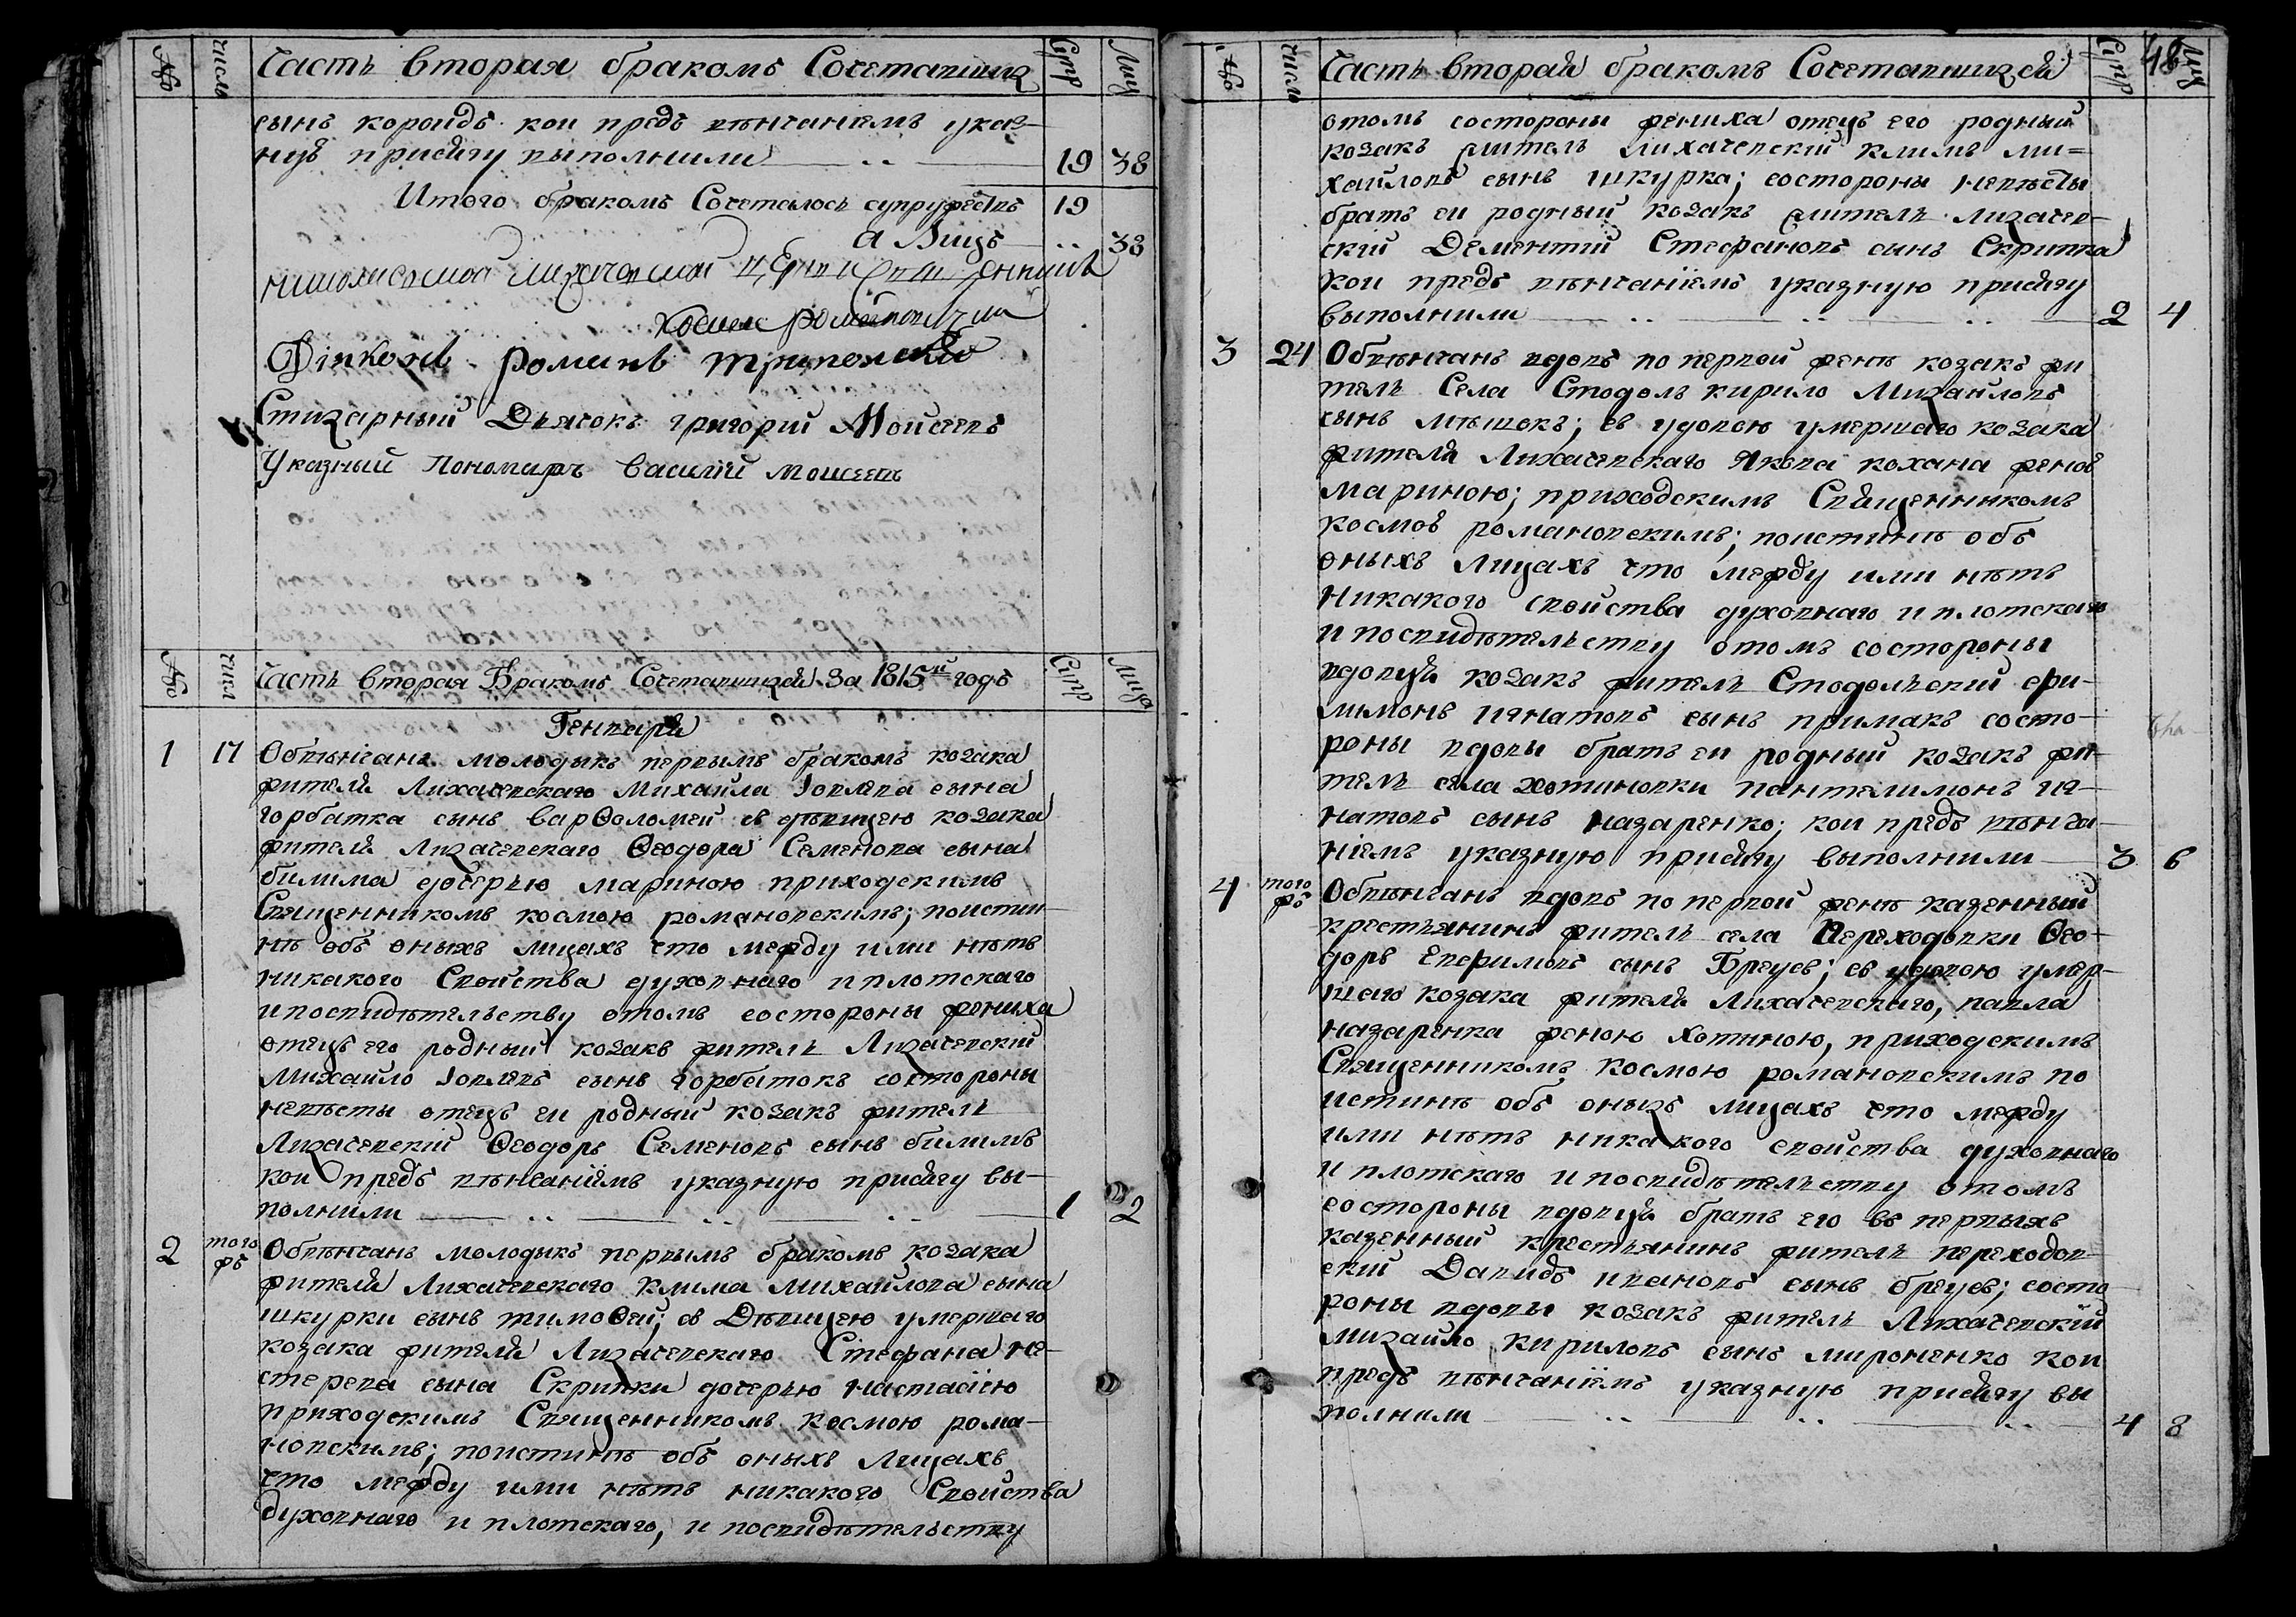 № число Часть вторая бракомъ Сочетавших Супр Лиц
сынъ короидъ кои предъ вѣнчаніемъ указ-
нуѣ присягу выполнили 19 38
Итого бракомъ Сочеталось супружествъ 19
а Лицъ .. 38
Николаевской Лихачевской церкви священникъ
Косма романовскій
Діяконъ романъ трипольскій
Стихарный Дьячокъ григорий Моисеевъ
Указный Пономарь василий мошеевъ
№ Числ Часть вторая Бракомъ Сочетавшихся За 1815й годъ Супр Лица
Генваря
1 17 Обвѣнчанъ молодыкъ первымъ бракомъ козака
жителя Лихачевскаго Михаила Іовлева сына
горбатка сынъ варѳоломей съ дѣвицею козака
жителя Лихачевскаго Ѳеодора Семенова сына
билима дочерью мариною приходскимъ
Священникомъ космою романовскимъ; поистин-
нѣ объ оныхъ лицахъ что между ими нѣтъ
никакого Свойства духовнаго и плотскаго
и посвидѣтельству отомъ состороны жениха
отецъ его родный козакъ житель Лихачевский
Михайло Іовлевъ сынъ горбатокъ состороны
невѣсты отецъ ея родный козакъ житель
Лихачевский Ѳеодоръ Семеновъ сынъ билимъ
кои предъ вѣнчаніемъ указную присягу вы-
полнили 1 2
2 того жъ Обвѣнчанъ молодыкъ первымъ бракомъ козака
жителя Лихачевскаго клима михайлова сына
шкурки сынъ тимоѳей; съ Дѣвицею умершаго
козака жителя Лихачевскаго Стефана не-
стерева сына Скрипки дочерью настасією
приходскимъ Священникомъ космою рома-
новскимъ; поистиннѣ объ оныхъ Лицахъ
что между ими нѣтъ никакого Свойства
духовнаго и плотскаго, и посвидѣтельству
№ Число Часть вторая бракомъ Сочетавшихся Супр 48 Лиц
отомъ состороны жениха отецъ его родный
козакъ житель лихачевский климъ ми=
хайловъ сынъ шкурка; состороны невѣсты
братъ ея родный козакъ житель лихачев-
ский Дементий Стефановъ сынъ Скрипка
кои предъ вѣнчаніемъ указную присягу
выполнили 2 4
3 24 Обвѣнчанъ вдовъ по первой женѣ козакъ жи
тель Села Стодолъ кирило Михайловъ
сынъ мѣшокъ; съ удовою умершаго козака
жителя Лихачевскаго Якова кохана женоѣ
Мариною; приходскимъ Священникомъ
космоѣ романовскимъ; поистиннѣ объ
оныхъ Лицахъ что между ими нѣтъ
никакого свойства духовнаго и плотскаго
и посвидѣтельству отомъ состороны
вдовца козакъ житель Стодольский фи-
лимонъ игнатовъ сынъ примакъ состо-
роны вдовы братъ ея родный козакъ жи-
тель села хотиновки пантелимонъ иг-
натовъ сынъ назаренко; кои предъ вѣнча-
ніемъ указную присягу выполнили 3 6
4 того жъ Обвѣнчанъ вдовъ по первой женѣ казенный
крестьянинъ житель села Переходовки Ѳео-
доръ Ефимовъ сынъ Брецъ; съ удовою умер-
шаго козака жителя Лихачевскаго, павла
назаренка женою Хотиною, приходскимъ
Священникомъ космою романовскимъ по
истиннѣ объ оныхъ лицахъ что между
ими нѣтъ никакого свойства духовнаго
и плотскаго и посвидѣтельству отомъ
состороны вдовца братъ его въ первыхъ
казенный крестьянинъ житель переходов-
ский Давидъ ивановъ сынъ брецъ; состо
роны вдовы козакъ житель Лихачевский
михайло кириловъ сынъ мироненко кои
предъ вѣнчаніемъ указную присягу вы
полнили 4 8